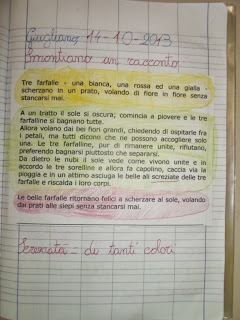 Giugliano 14-10-2013
Smontiamo un racconto
Tre farfalle - una bianca, una rossa ed una gialla -
scherzano in un prato, volando di fiore in fiore senza
stancarsi mai.
A un tratto il sole si oscura; comincia a piovere e le tre
farfalline si bagnano tutte.
Allora volano dai bei fiori grandi, chiedendo di ospitarle fra
i petali, ma tutti dicono che ne possono accogliere solo
una. Le tre farfalline, pur di rimanere unite, rifiutano,
preferendo bagnarsi piuttosto che separarsi.
Da dietro le nubi il sole vede come vivono unite e in
accordo le tre sorelline e allora fa capolino, caccia via la
pioggia e in un attimo asciuga le belle ali screziate delle tre
farfalle e riscalda i loro corpi.
Le belle farfalle ritornano felici a scherzare al sole, volando
dai prati alle siepi senza stancarsi mai.
Screziata = di tanti colori